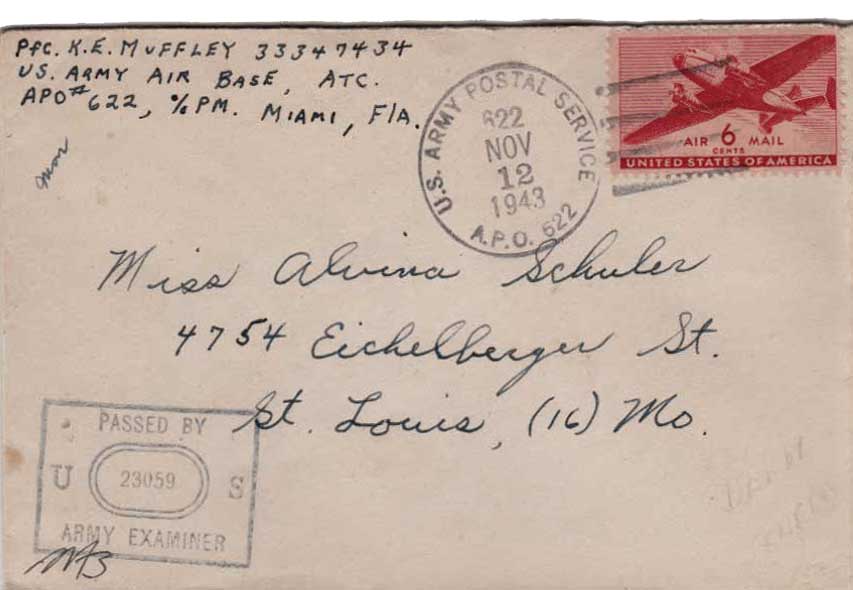 Pfc. K.E. MUFFLEY 33347434
US. ARMY AIR BASE, ATC.
APO# 622, % PM. MIAMI, F/A.
U.S. ARMY POSTAL SERVICE
622
NOV
12
1943
A.P.O. 622
AIR 6 MAIL
CENTS
UNITED STATES OF AMERICA
Miss Alvina Schuler
4754 Eichelberger St.
St. Louis, (16) Mo.
PASSED BY
U 23059 S
ARMY EXAMINER